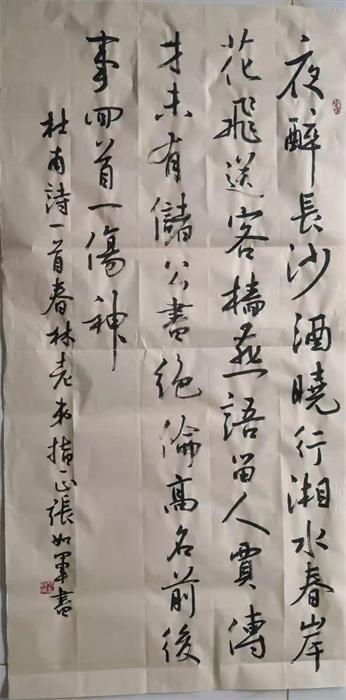 夜醉長沙酒曉行湘水春岸
花飛送客檣燕語留人賈傅
才未有儲公書絕倫高名前後
事回首一傷神
杜甫詩一首春林老弟指正張如軍書